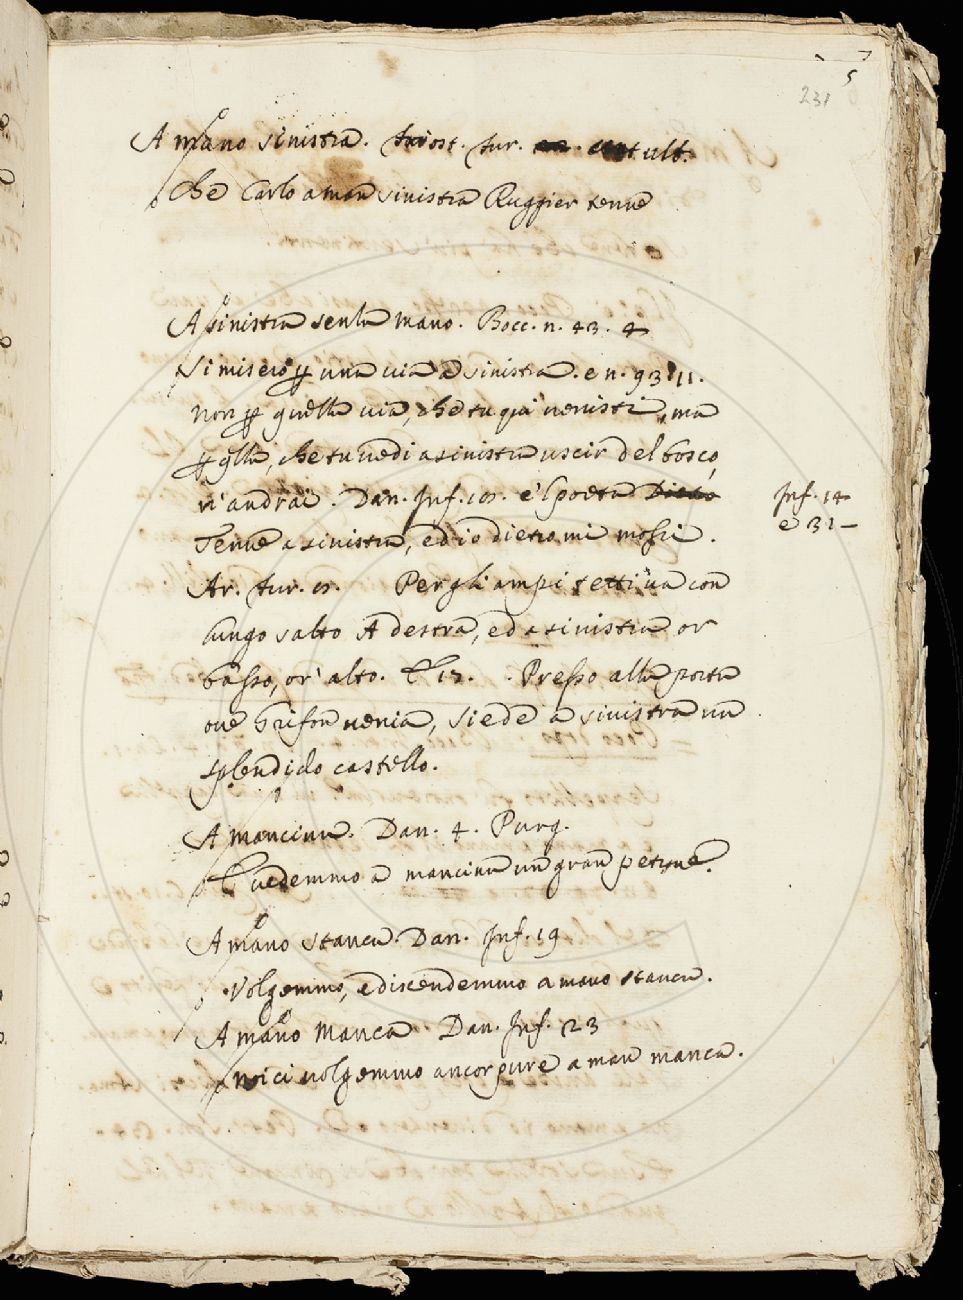 5
231
A mano sinistra. Ariost. fur. ult.
che Carlo a man sinistra Ruggier tenne
A sinistra senza mano. Bocc. n. 43. 4
si mise per una via a sinistra. e n. 93. 11.
non per quella via, che tu qui venisti, ma
per qlla, che tu vedi a sinistra uscir del bosco,
n'andrai. Dan. Inf. 18. e 'l poeta
Inf. 14
e 31 –
Tenne a sinistra, ed io dietro mi mossi.
Ar. fur. Per gli ampi tetti va con
lungo salto A destra, ed a sinistra or
basso, or' alto. E 15. Presso alla porta
ove Grifon venia, siede a sinistra un
splendido castello.
A mancina. Dan. 4. Purg.
Vedemmo a mancina un gran petrone.
A mano stanca. Dan. Inf. 19
Volgemmo, e discendemmo a mano stanca.
A mano Manca Dan. Inf. 23
noi ci volgemmo ancor pure a man manca.